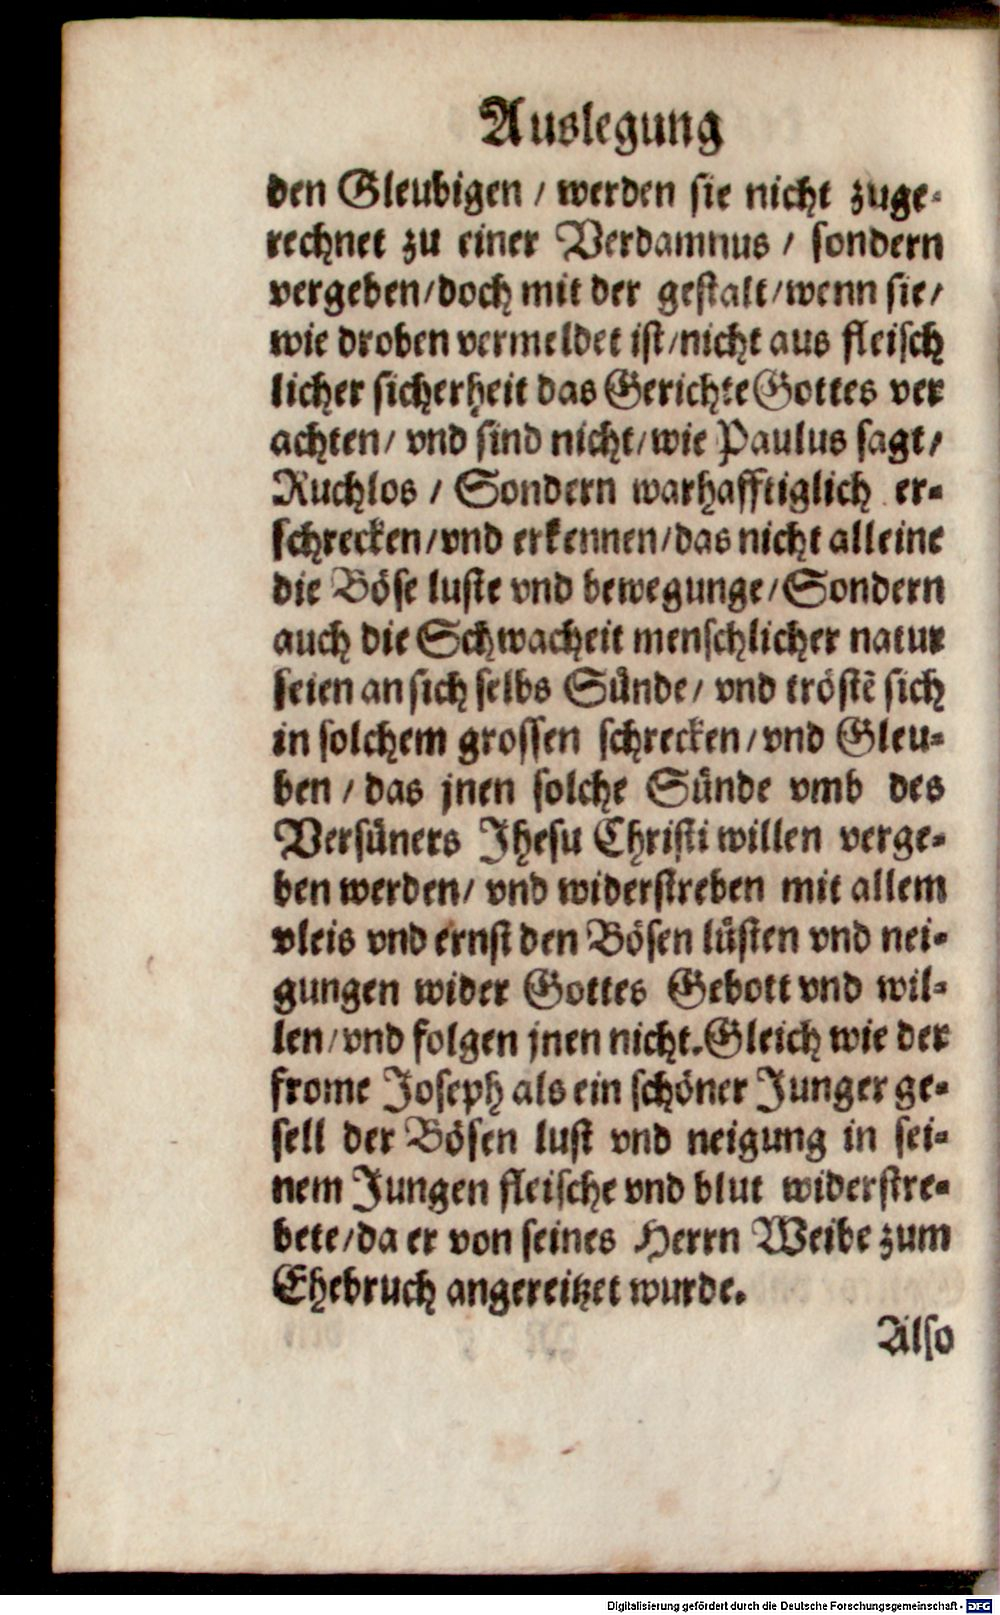 Auslegung
den Gleubigen / werden sie nicht zuge-
rechnet zu einer Verdamnus / sondern
vergeben/doch mit der gestalt/wenn sie/
wie droben vermeldet ist/nicht aus fleisch
licher sicherheit das Gerichte Gottes ver
achten/ vnd sind nicht/wie Paulus sagt/
Ruchlos / Sondern warhafftiglich er-
schrecken/vnd erkennen/das nicht alleine
die Böse luste vnd bewegunge/Sondern
auch die Schwacheit menschlicher natur
seien an sich selbs Sünde/ vnd tröstē sich
in solchem grossen schrecken/vnd Gleu-
ben / das jnen solche Sünde vmb des
Versüners Jhesu Christi willen verge-
ben werden/ vnd widerstreben mit allem
vleis vnd ernst den Bösen lüsten vnd nei-
gungen wider Gottes Gebott vnd wil-
len/vnd folgen jnen nicht. Gleich wie der
frome Joseph als ein schöner Junger ge-
sell der Bösen lust vnd neigung in sei-
nem Jungen fleische vnd blut widerstre-
bete/da er von seines Herrn Weibe zum
Ehebruch angereitzet wurde.
Also
Digitalisierung gefördert durch die Deutsche Forschungsgemeinschaft - DFG